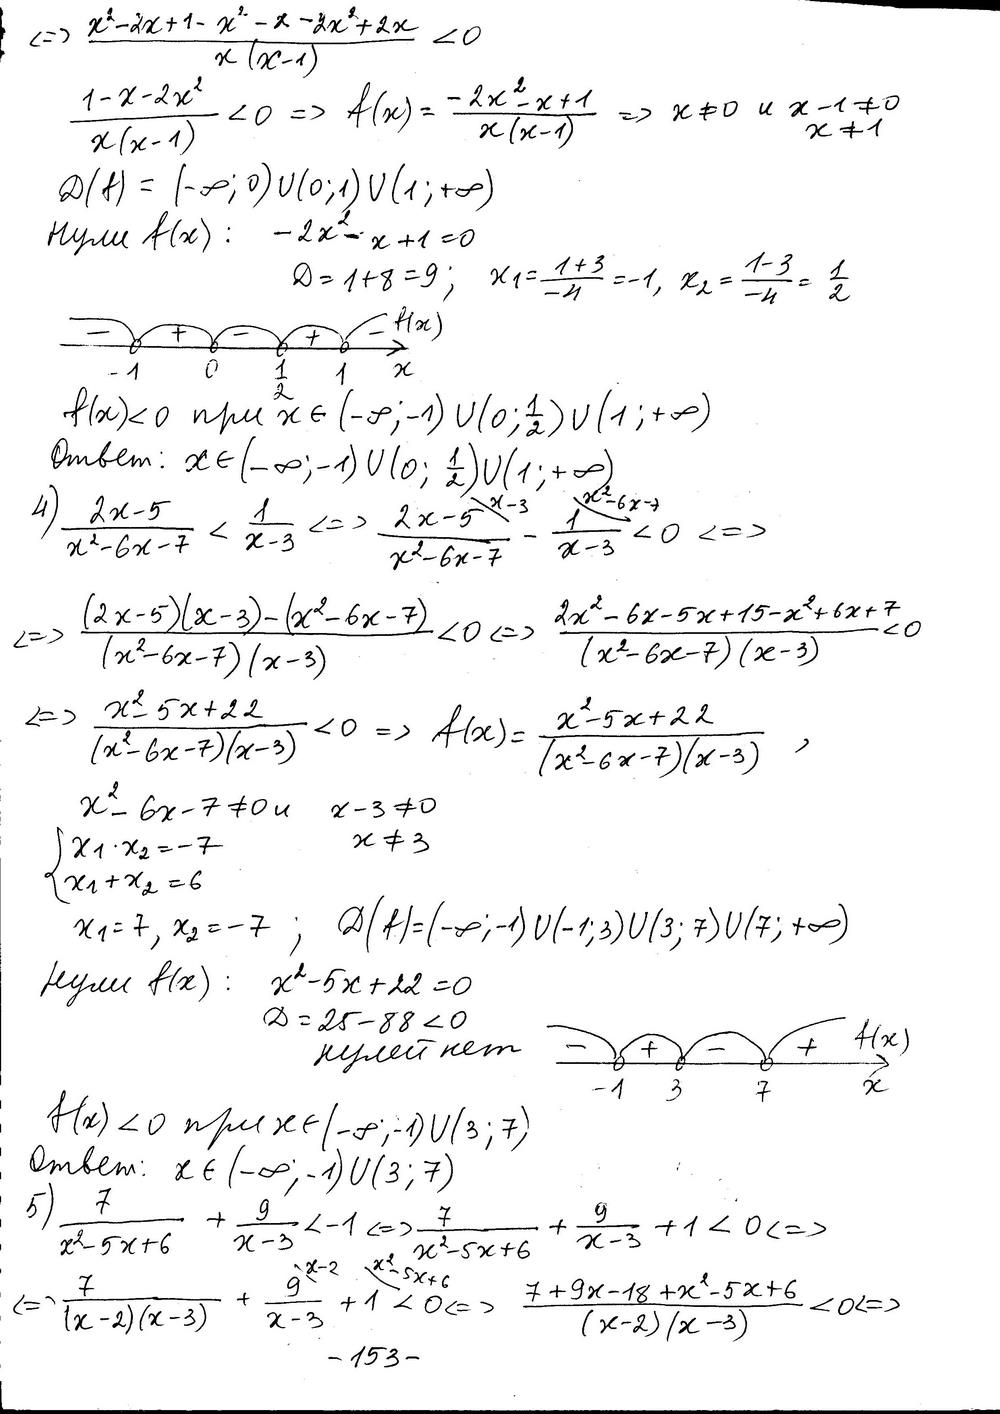 <=> (x²-2x+1-x²-x-2x²+2x)/(x(x-1)) <0
(1-x-2x²)/(x(x-1)) <0 => f(x)= (-2x²-x+1)/(x(x-1)) => x≠0 и x-1≠0
x≠1
D(f) = (-∞;0)U(0;1)U(1;+∞)
Нули f(x): -2x²-x+1=0
D=1+8=9; x₁=(1+3)/(-4)=-1, x₂=(1-3)/(-4)=1/2
- + - + - f(x)
-1 0 1/2 1 x
f(x)<0 при x∈(-∞;-1)U(0;1/2)U(1;+∞)
Ответ: x∈(-∞;-1)U(0;1/2)U(1;+∞)
4) (2x-5)/(x²-6x-7) < 1/(x-3) <=> (2x-5)/(x²-6x-7) ˣ⁻³ - 1/(x-3) x²-6x-7 <0 <=>
<=> ((2x-5)(x-3)-(x²-6x-7))/((x²-6x-7)(x-3)) <0 <=> (2x²-6x-5x+15-x²+6x+7)/((x²-6x-7)(x-3)) <0
<=> (x²-5x+22)/((x²-6x-7)(x-3)) <0 => f(x)= (x²-5x+22)/((x²-6x-7)(x-3)) ,
x²-6x-7≠0 и x-3≠0
{x₁·x₂=-7 x≠3
x₁+x₂=6
x₁=7, x₂=-7; D(f)=(-∞;-1)U(-1;3)U(3;7)U(7;+∞)
Нули f(x): x²-5x+22=0
D=25-88<0
нулей нет
- + - + f(x)
-1 3 7 x
f(x)<0 при x∈(-∞;-1)U(3;7)
Ответ: x∈(-∞;-1)U(3;7)
5) 7/(x²-5x+6) + 9/(x-3) <-1 <=> 7/(x²-5x+6) + 9/(x-3) +1 <0 <=>
<=> 7/((x-2)(x-3)) + 9/(x-3) ˣ⁻² +1 x²-5x+6 <0 <=> (7+9x-18+x²-5x+6)/((x-2)(x-3)) <0 <=>
-153-